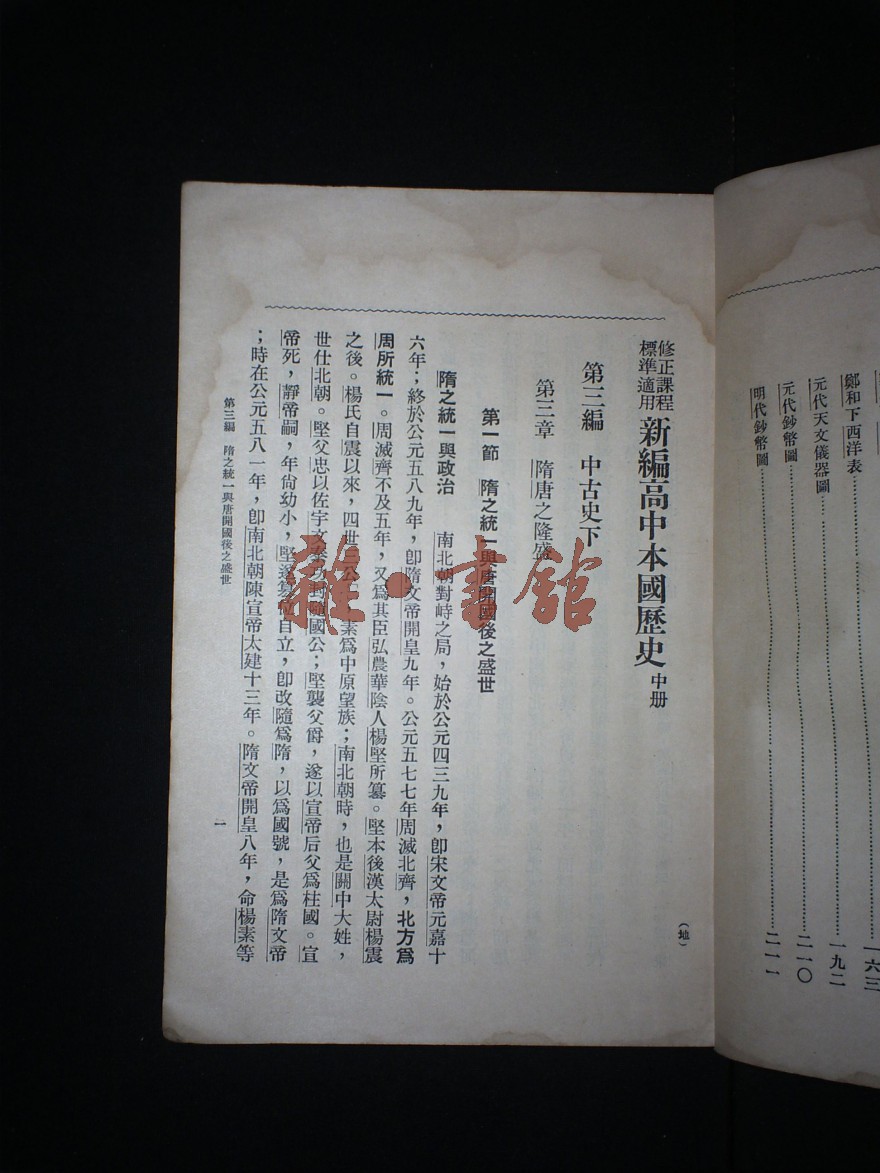 明代鈔幣圖……二一一
元代鈔幣圖……二一〇
元代天文儀器圖……一九二
鄭和下西洋表……一六三
修正課程標準適用 新編高中本國歷史 中册
(地)
第三編 中古史下
第三章 隋唐之隆盛
第一節 隋之統一與唐開國後之盛世
隋之統一與政治 南北朝對峙之局，始於公元四三九年，卽宋文帝元嘉十
六年；終於公元五八九年，卽隋文帝開皇九年。公元五七七年周滅北齊，北方爲
周所統一。周滅齊不及五年，又爲其臣弘農華陰人楊堅所簒。堅本後漢太尉楊震
之後。楊氏自震以來，四世三公，素爲中原望族；南北朝時，也是關中大姓，
世仕北朝。堅父忠以佐宇文泰功封隨國公；堅襲父爵，遂以宣帝后父爲柱國。宣
帝死，靜帝嗣，年尙幼小，堅遂簒位自立，卽改隨爲隋，以爲國號，是爲隋文帝
；時在公元五八一年，卽南北朝陳宣帝太建十三年。隋文帝開皇八年，命楊素等
第三編 隋之統一與唐開國後之盛世
一
雜·書館